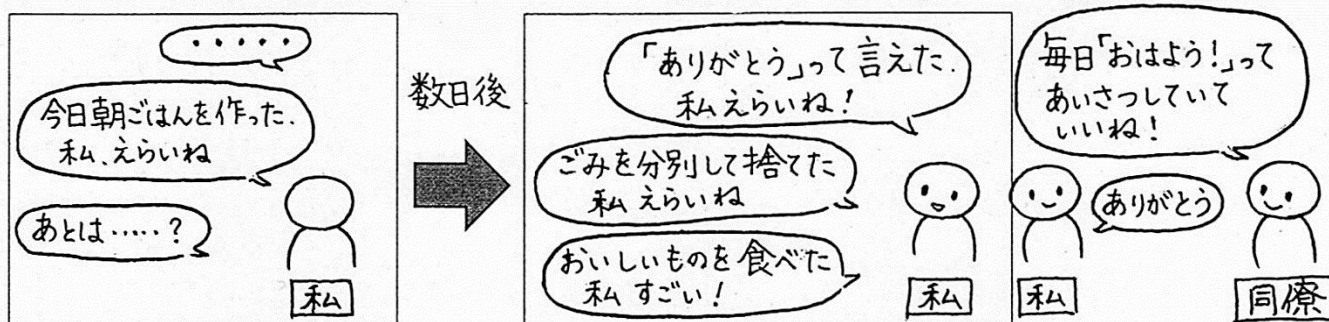 ・・・・・
今日朝ごはんを作った.
私、えらいね
あとは……?
私
数日後
「ありがとう」って言えた.
私えらいね!
ごみを分別して捨てた
私えらいね
おいしいものを食べた
私すごい!
私
毎日「おはよう!」って
あいさつしていて
いいね!
ありがとう
私
同僚